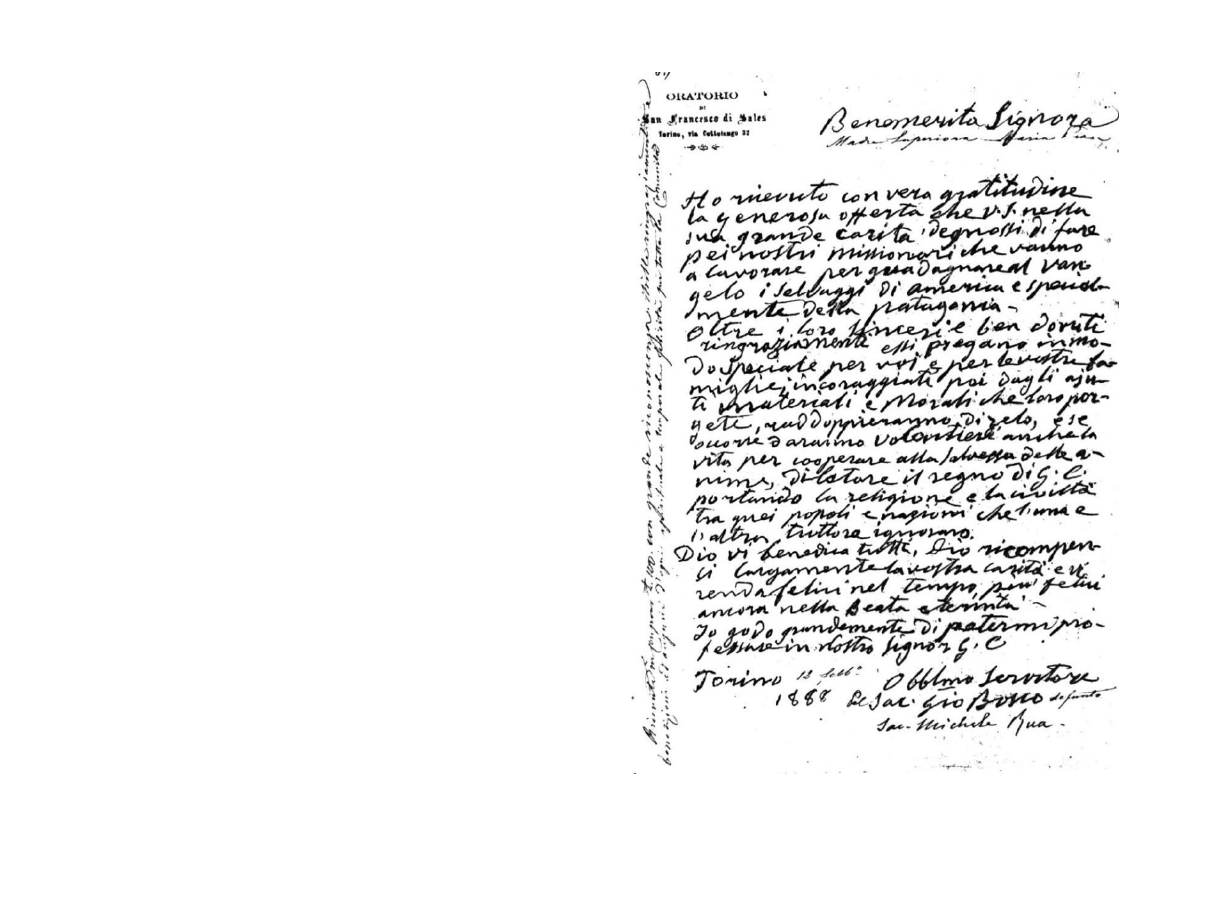 ORATORIO
DI
San Francesco di Sales
Torino, via Cottolengo 32
Benemerita Signora
Madre Superiora Maria
Ho ricevuto con vera gratitudine
la generosa offerta che V. S. nella
sua grande carita' degnossi di fare
pei nostri missionari che vanno
a lavorare per guadagnare al van-
gelo i selvaggi di america e special-
mente della patagonia -
Oltre i loro sinceri e ben dovuti
ringraziamenti essi pregano in mo-
do speciale per voi e per le vostre fa-
miglie, incoraggiati poi dagli aju-
ti materiali e Morali che loro por-
gete, raddoppieranno di zelo, e se
occorre daranno volontieri anche la
vita per cooperare alla salvezza delle a-
nime, dilatare il regno di G. C.
portando la religione e la civiltà
tra quei popoli e nazioni che l'una e
l'altra tuttora ignorano.
Dio vi benedica tutti, Dio ricompen-
si largamente la vostra carità e vi
renda felici nel tempo, più felici
ancora nella Beata eternità -
Io godo grandemente di potermi pro-
fessare in Nostro Signor G. C
Torino 12 febb°
1888
Obblmo Servitore
Pel Sac. Gio Bosco defunto
Sac. Michele Rua -